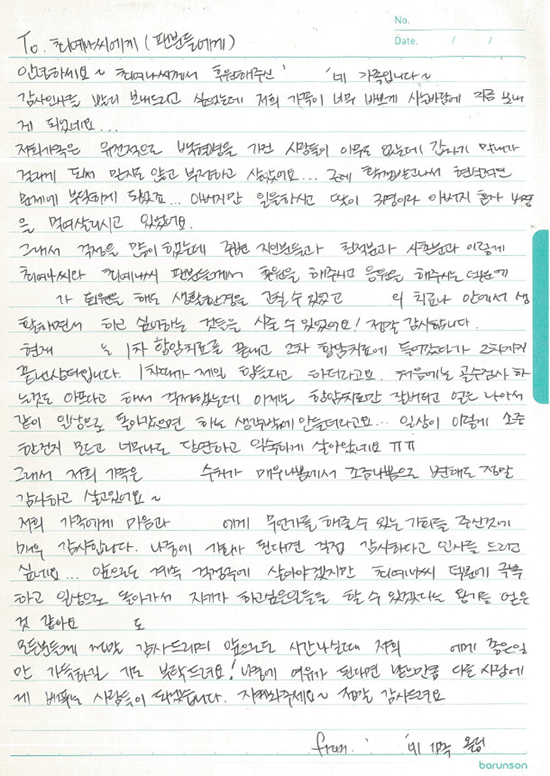 No.
Date. / /
To. 최예나씨에게 (팬분들에게)
안녕하세요~ 최예나씨께서 후원해주신 네 가족입니다~
감사인사를 빨리 보내드리고 싶었는데 저희 가족이 너무 바쁘게 사는바람에 지금 보내
게 되었네요...
저희가족은 유전적으로 백혈병을 가진 사람들이 아무도 없는데 갑자기 막내가
걸리게 되서 믿지도 않고 부정하고 살았어요...
문제에 부딪히게 되었죠... 아버지만 일을하시고 딸이 3명이라 아버지 혼자
을 먹여살리시고 있었어요.
그래서 걱정을 많이 했는데 주변 지인분들과 친척분과 사촌분과 이렇게
최예나씨와 최예나씨 팬분들께서 후원을 해주시고 응원을 해주시는 덕분에
가 퇴원을 해도 생활환경을 갖출 수 있었고 의 치료나 안에서 생
활하면서 하고 싶어하는 것들을 시줄 수 있었어요! 정말 감사합니다.
현재 는 1차 항암치료를 끝내고 2차 항암치료에 들어갔다가 2차까지
끝난상태입니다. 1차때가 제일 힘들다고 하더라고요. 처음에는 골수검사 하
는것도 아프다고 해서 걱정했는데 이제는 항암치료만 잘버티고 얼른 나아서
같이 일상으로 돌아갔으면 하는 생각밖에 안들더라고요... 일상이 이렇게 소중
한건지 모르고 너무나도 당연하고 익숙하게 살아왔네요 ㅠㅠ
그래서 저희 가족은 수치가 매우나쁨에서 조금나쁨으로 변해도 정말
감사하고 살고있어요~
저희 가족에게 마음과 에게 무언가를 해줄 수 있는 기회를 주신것에
매우 감사합니다. 나중에 기회가 된다면 직접 감사하다고 인사를 드리고
싶네요... 앞으로도 계속 걱정속에 살아야겠지만 최예나씨 덕분에 극복
하고 일상으로 돌아가서 자기가 하고싶은일들을 할 수 있겠다는 용기를 얻은
것 같아요 도
모든분들께 정말 감사드리며 앞으로도 시간나실때 저희 에게 좋은일
만 가득하길 기도 부탁드려요! 나중에 여유가 된다면 받은만큼 다른 사람에
게 베푸는 사람들이 되겠습니다. 지켜봐주세요~ 정말 감사드려요
from. 네 가족 올림
barunson